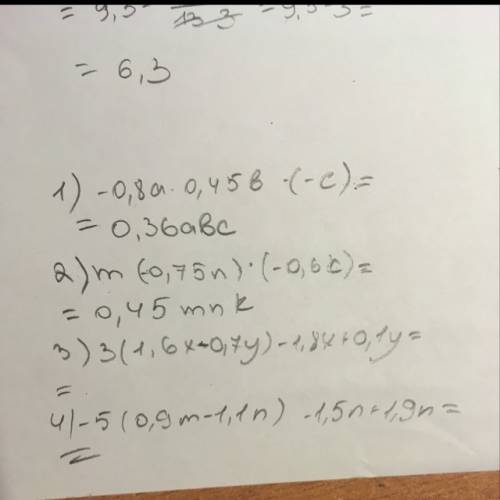 = 6,3
1) -0,8a · 0,45b · (-c) =
= 0,36abc
2) m (-0,75n) · (-0,6k) =
= 0,45 mnk
3) 3(1,6x-0,7y) -1,8x+0,1y=
=
4) -5 (0,9m-1,1n) -1,5n+1,9n=
=